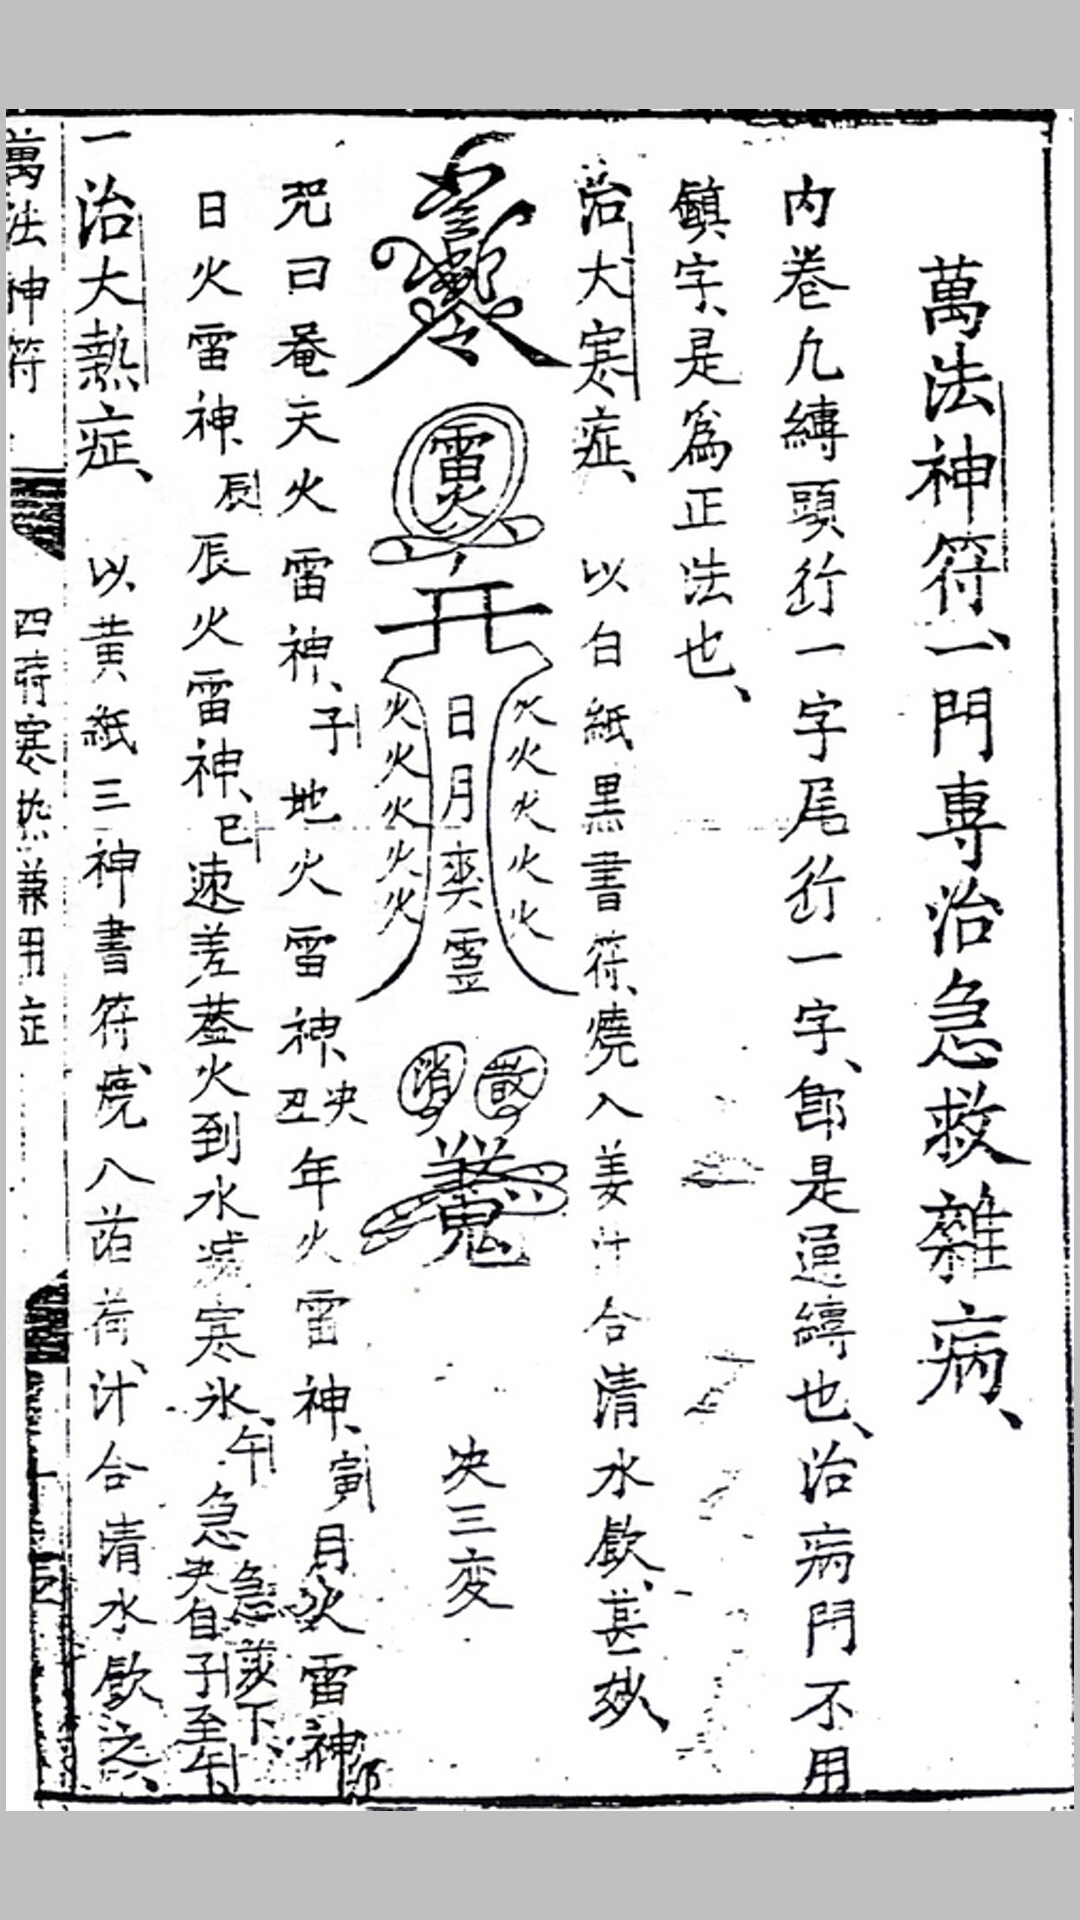 萬法神符一門專治急救雜病、
内卷凢縳頭𢓜一字尾𢓜一字、即是逼縳也、治病門不用
鎮字、是爲正法也、
治大寒症、 以白紙黒書符、燒入姜汁合清水飲、甚妙、
雷火
日月奕霊
火火火火火
火火火火火
消 散
决三変
咒曰菴天火雷神、子地火雷神、决丑年火雷神、寅月火雷神
日火雷神、辰辰火雷神、巳速差蓋火到水减寒氷、午急急羙下、决自子至午、
一治大熱症、 以黄紙三神書符、燒入泊荷汁合清水飲之、
萬法神符 四時寒热兼用症